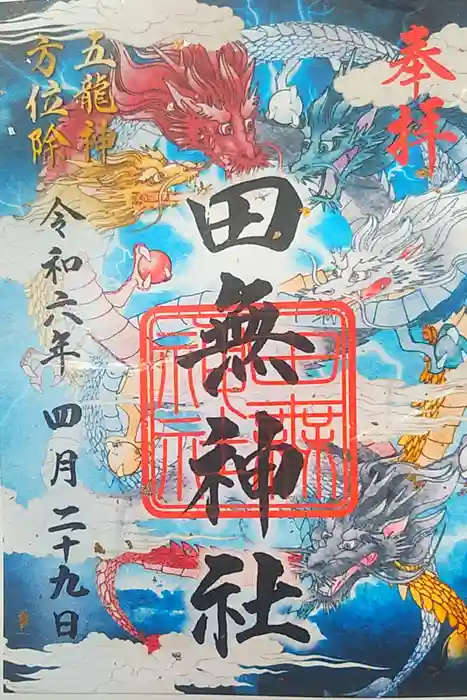 奉拝
田無神社
田無神社
五龍神
方位除
令和六年 四月 二十九日